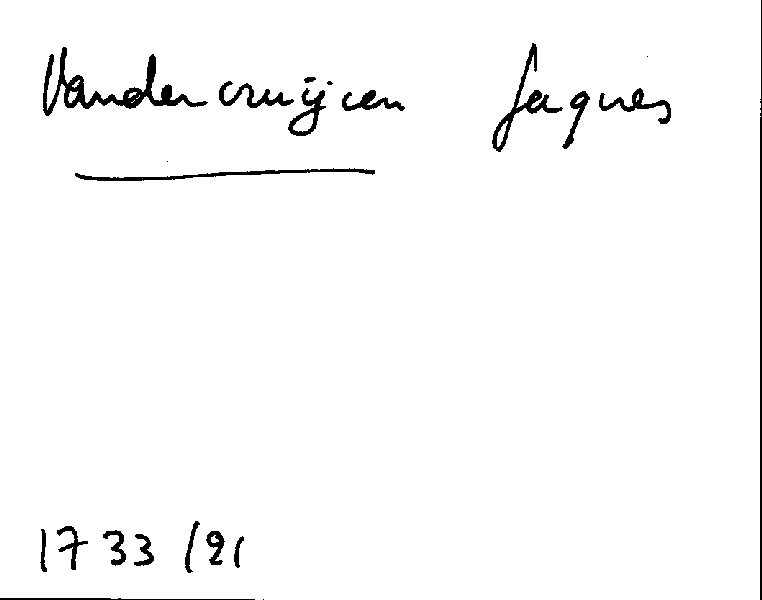 Vandercruijcen Jaques
1733/21